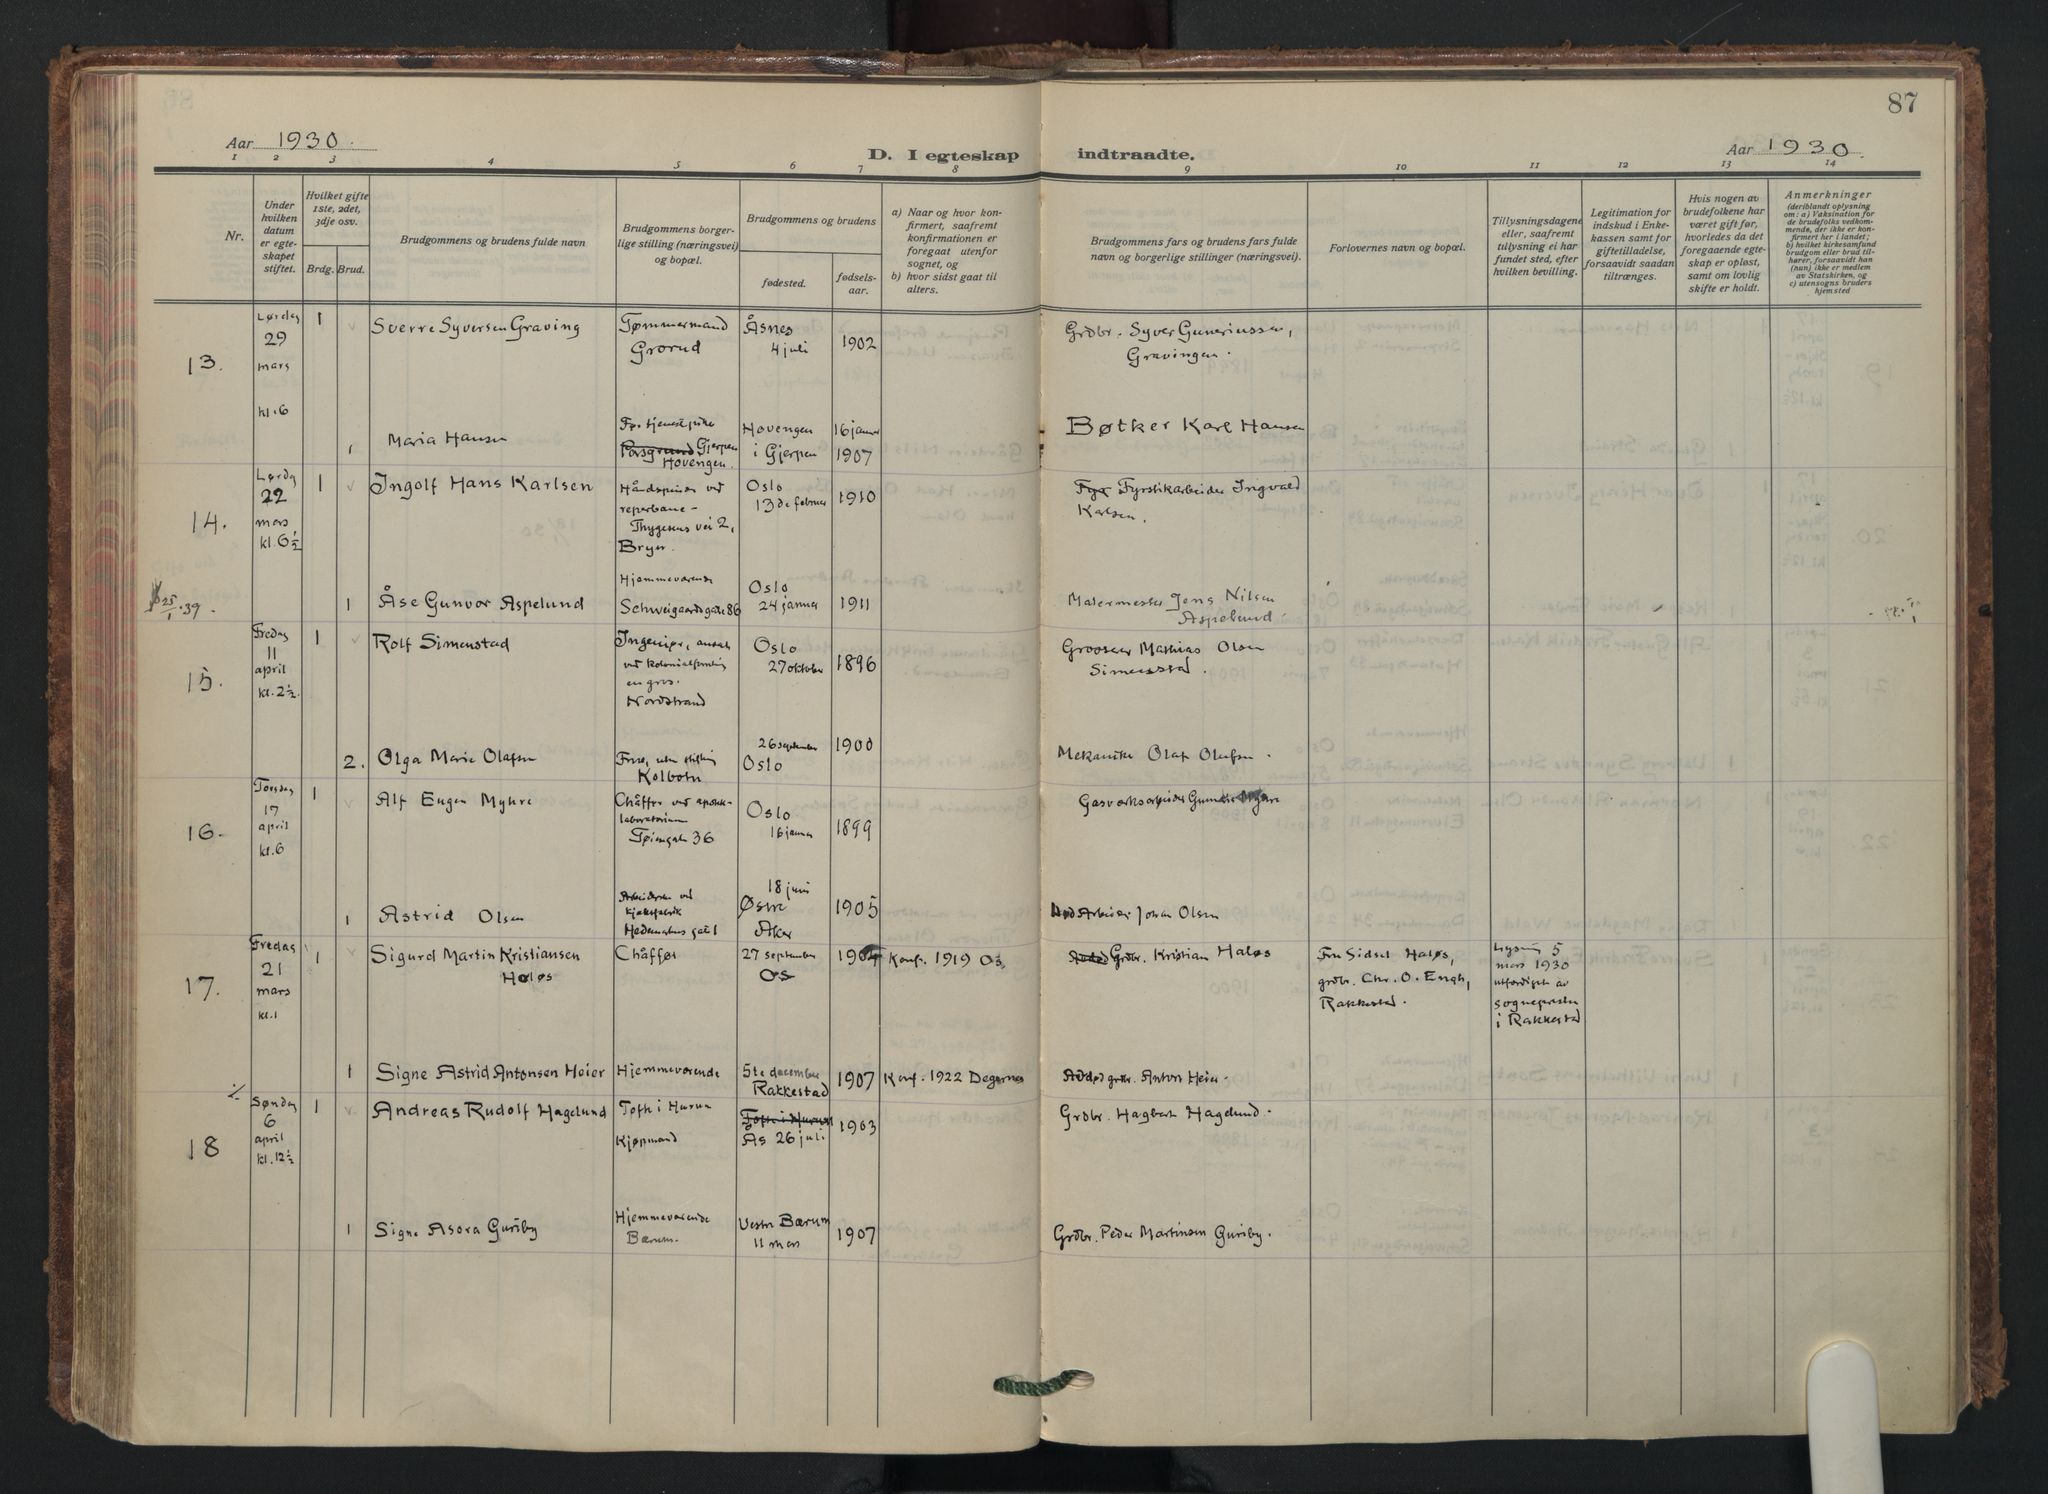 87
Aar 1930.
D. I egteskap indtraadte.
Aar 1930.
1 2 3 4 5 6 7 8 9 10 11 12 13 14
Nr.
Under hvilken datum er egteskapet stiftet.
Hvilket gifte 1ste, 2det, 3dje osv.
Brdg. Brud.
Brudgommens og brudens fulde navn
Brudgommens borgerlige stilling (næringsvei) og bopæl.
Brudgommens og brudens
fødested.
fødselsaar.
a) Naar og hvor konfirmert, saafremt konfirmationen er foregaat utenfor sognet, og
b) hvor sidst gaat til alters.
Brudgommens fars og brudens fars fulde navn og borgerlige stillinger (næringsvei).
Forlovernes navn og bopæl.
Tillysningsdagene eller, saafremt tillysning ei har fundet sted, efter hvilken bevilling.
Legitimation for indskud i Enkekassen samt for giftetilladelse, forsaavidt saadan tiltrænges.
Hvis nogen av brudefolkene har været gift før, hvorledes da det foregaaende egteskap er opløst, samt om lovlig skifte er holdt.
Anmerkninger
(deriblandt oplysning om: a) Vaksination for de brudefolks vedkommende, der ikke er konfirmert her i landet;
b) hvilket kirkesamfund brudgom eller brud tilhører, forsaavidt han (hun) ikke er medlem av Statskirken, og
c) utensogns bruders hjemsted
13.
Lørdag
29
mars
kl. 6
1
Sverre Syversen Graving
Tømmermand
Grorud
Åsnes
4 juli
1902
Grdbr. Syver Guneriussen,
Gravingen.
1
Maria Hansen
Fr. tjenestepike
Porsgrund Gjerpen
Hovengen.
Hovengen
i Gjerpen
16 januar
1907
Bøtker Karl Hansen
14.
Lørdag
22
mars
kl. 6 1/2
1
Ingolf Hans Karlsen
Håndspinder ved
reperbane -
Thygesens vei 2,
Bryn.
Oslo
13de februar
1910
Fyr Fyrstikarbeider Ingvald
Karlsen.
25/1.39.
1
Åse Gunvor Aspelund
Hjemmeværende
Schweigaardsgate 86
Oslo
24 januar
1911
Malermester Jens Nilsen
Aspelund
15.
Fredag
11
april
kl. 2 1/2
1
Rolf Simenstad
Ingeniør, ansatt
ved kolonialforretning
en gros.
Nordstrand
Oslo
27 oktober
1896
Grosserer Mathias Olsen
Simenstad.
2.
Olga Marie Olafsen
Frue, uten stilling
Kolbotn
26 september
Oslo
1900
Mekaniker Olaf Olufsen.
16.
Torsdag
17
april
kl. 6
1
Alf Eugen Myhre
Chåffør ved apotek-
laboratorium
Tøiengaten 36
Oslo
16 januar
1899
Gasverksarbeider
1
Astrid Olsen
Arbeiderske ved
kjeksfabrik
Hedemarks gate 1
18 juni
Østre
Aker
1905
Arbeider Johan Olsen
17.
Fredag
21
mars
kl. 1
1
Sigurd Martin Kristiansen
Haløs
Chåffør
27 september
Os
1904
Konf. 1919 Os
Grdbr. Kristian Haløs
Fru Sidsel Haløs,
grdbr. Chr. O. Engh,
Rakkestad.
Lysning 5
mars 1930
utferdiget av
sognepresten
i Rakkestad
1
Signe Astrid Antonsen Heier
Hjemmeværende
5te december
Rakkestad
1907
Konf. 1922 Degernes
Anton Heier.
18
Søndag
6
april
kl. 12 1/2
1
Andreas Rudolf Hagelund
Tofte i Hurum
Kjøpmand
Tofte i Hurum
Ås 26 juli
1903
Grdbr. Hagbart Hagelund.
1
Signe Asora Guriby
Hjemmeværende
Bærum.
Vestre Bærum
11 mars
1907
Grdbr. Peder Martinsen Guriby.